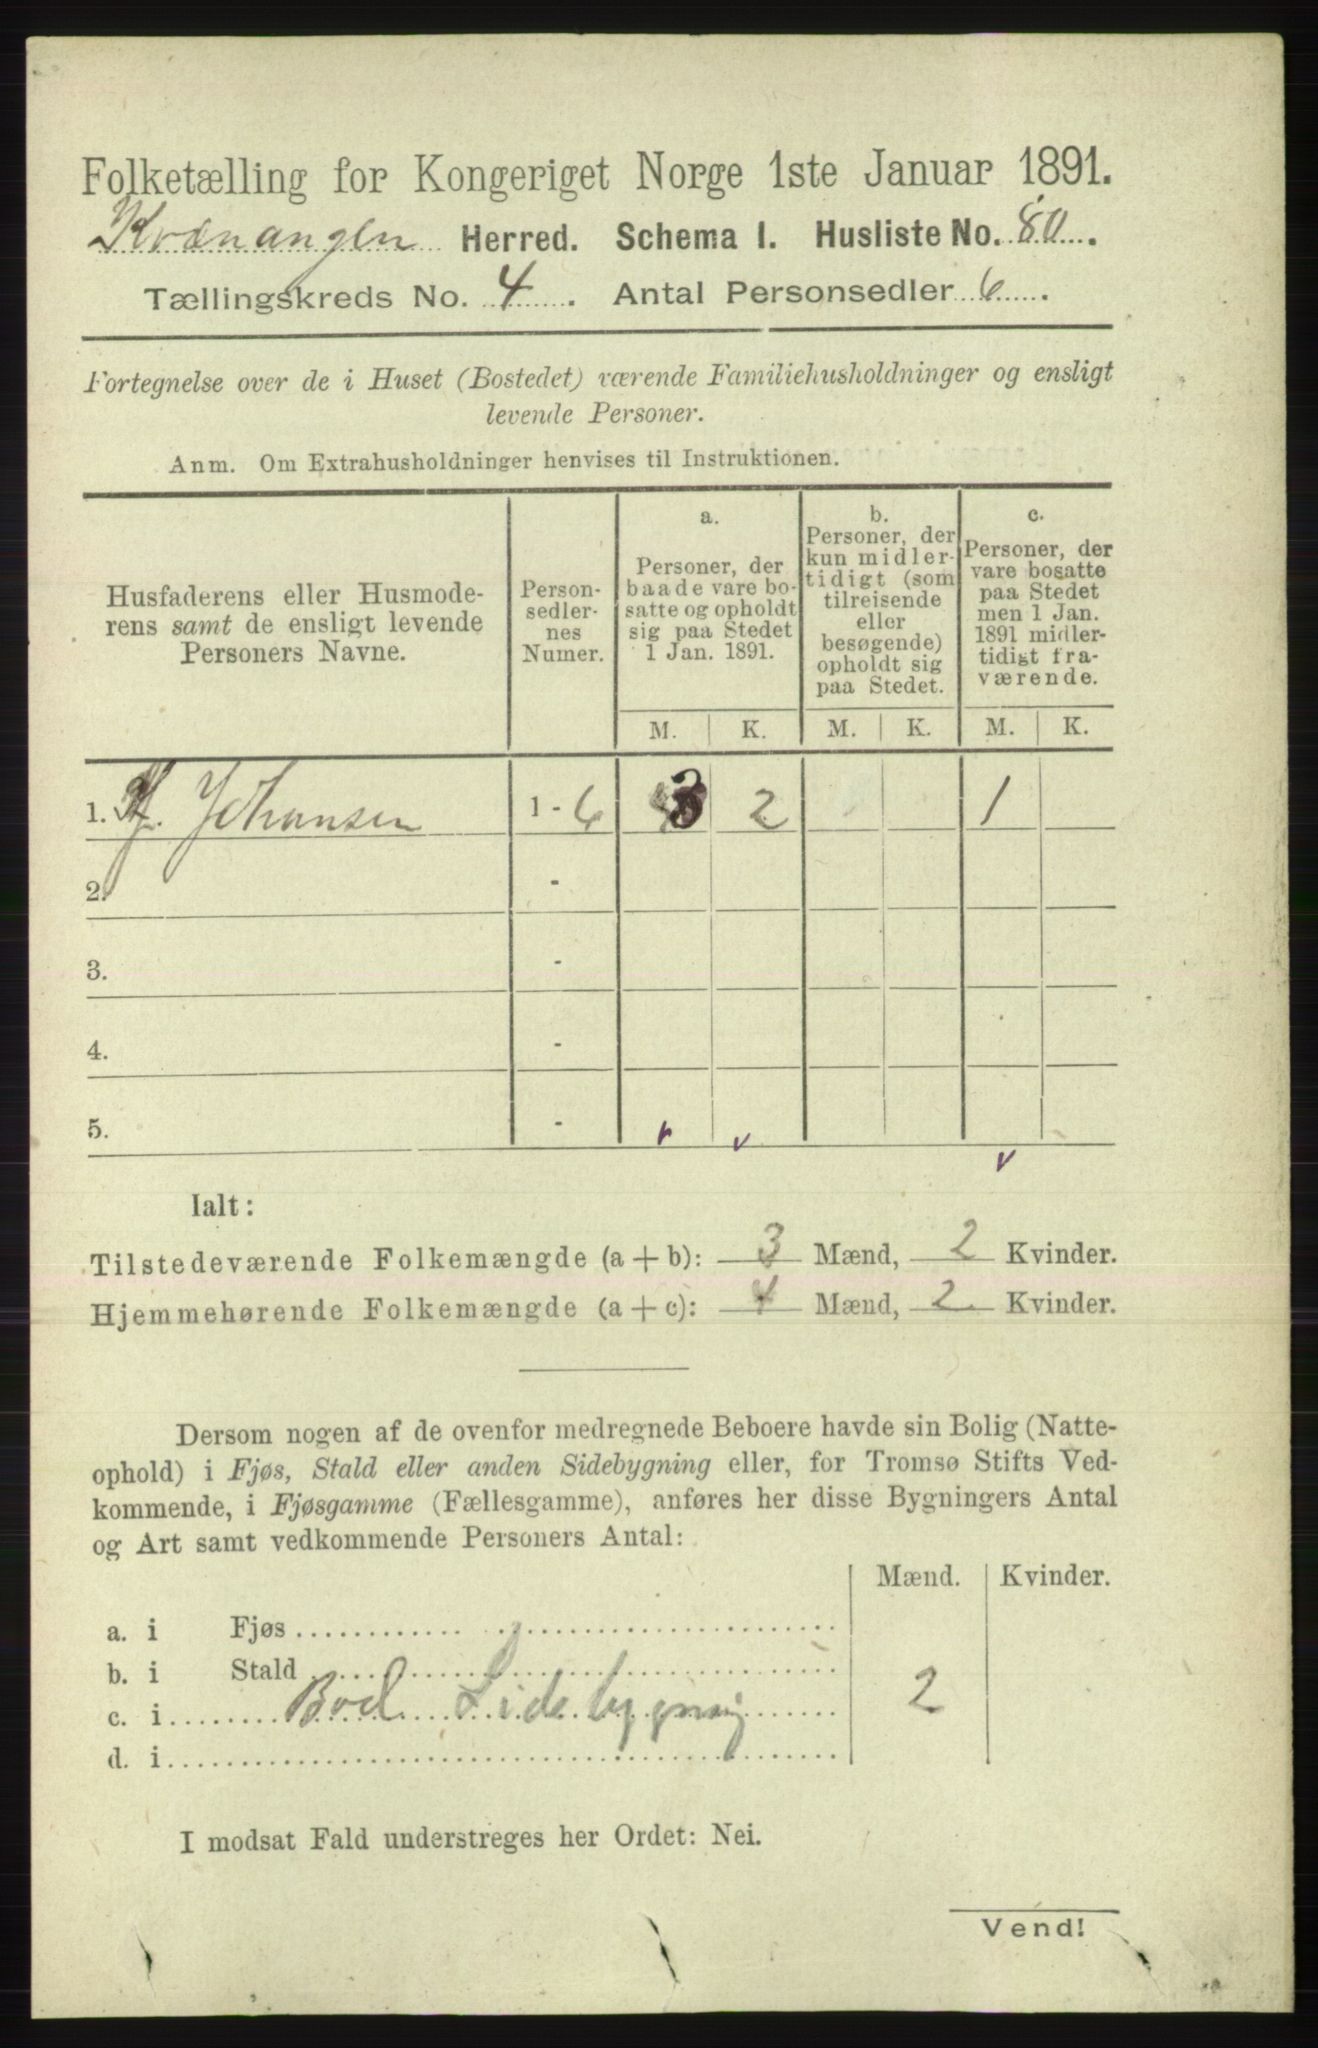 Folketælling for Kongeriget Norge 1ste Januar 1891.
Kvænangen Herred. Schema I. Husliste No. 80.
Tællingskreds No. 4. Antal Personsedler 6.
Fortegnelse over de i Huset (Bostedet) værende Familiehusholdninger og ensligt
levende Personer.
Anm. Om Extrahusholdninger henvises til Instruktionen.
Husfaderens eller Husmode-
rens samt de ensligt levende
Personers Navne.
Person-
sedler-
nes
Numer.
a.
Personer, der
baade vare bo-
satte og opholdt
sig paa Stedet
1 Jan. 1891.
b.
Personer, der
kun midler-
tidigt (som
tilreisende
eller
besøgende)
opholdt sig
paa Stedet.
c.
Personer, der
vare bosatte
paa Stedet
men 1 Jan.
1891 midler-
tidigt fra-
værende.
M. K. M. K. M. K.
1. Johansen 1 - 6 3 2 1
2. -
3. -
4. -
5. -
Ialt:
Tilstedeværende Folkemængde (a + b): 3 Mænd, 2 Kvinder.
Hjemmehørende Folkemængde (a + c): 4 Mænd, 2 Kvinder.
Dersom nogen af de ovenfor medregnede Beboere havde sin Bolig (Natte-
ophold) i Fjøs, Stald eller anden Sidebygning eller, for Tromsø Stifts Ved-
kommende, i Fjøsgamme (Fællesgamme), anføres her disse Bygningers Antal
og Art samt vedkommende Personers Antal:
Mænd. Kvinder.
a. i Fjøs
b. i Stald
c. i Bod Sidebygning 2
d. i
I modsat Fald understreges her Ordet: Nei.
Vend!